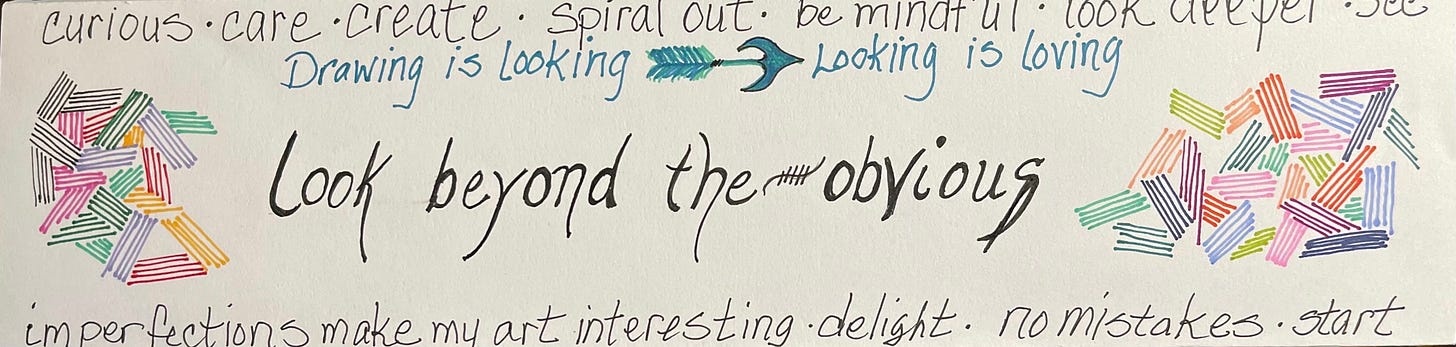 curious · care · create · spiral out · be mindful · look deeper · see
Drawing is looking Looking is loving
Look beyond the obvious
imperfections make my art interesting · delight · no mistakes · start